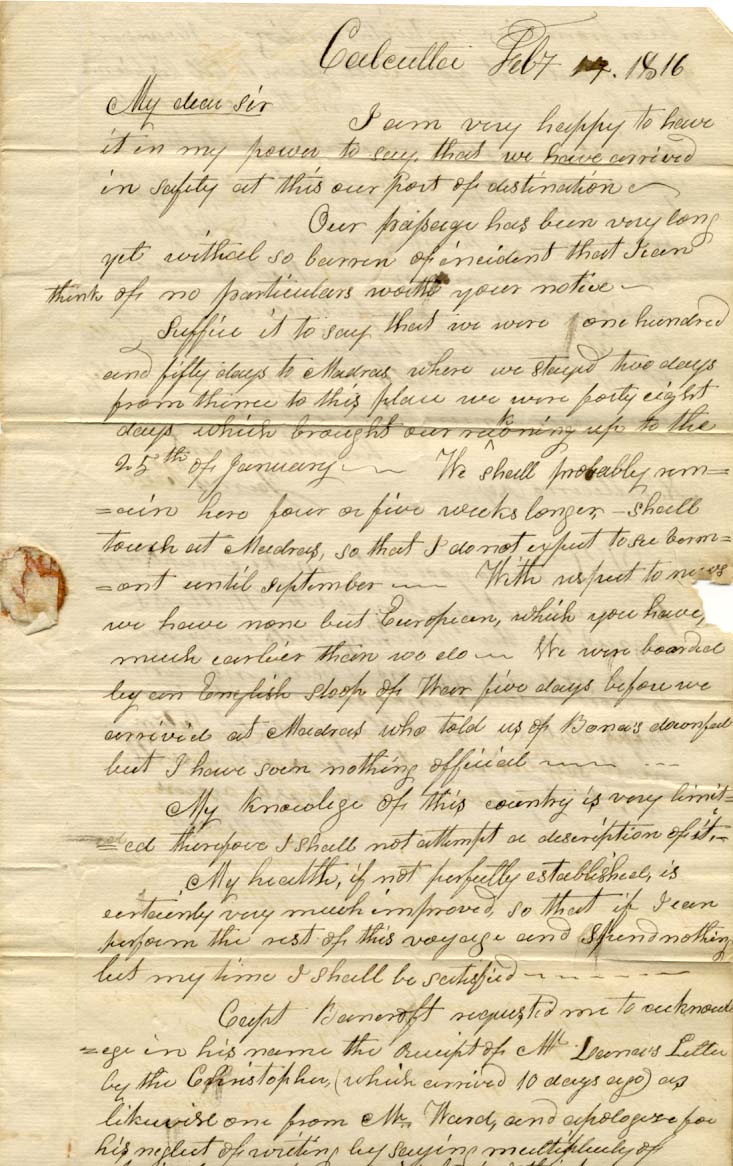 Calcutta Feby 17. 1816
My dear sir
I am very happy to have
it in my power to say, that we have arrived
in safety at this our Port of destination
Our passage has been very long
yet withal so barren of incident that I can
think of no particulars worth your notice
Suffice it to say that we were one hundred
and fifty days to Madras where we stayd two days
from thence to this place we were forty eight
days which brought our reckoning up to the
25th of January We shall probably rem=
=ain here four or five weeks longer - shall
touch at Madras, so that I do not expect to see
=ont until September With respect to news
we have none but European, which you have,
much earlier than we do We were boarded
by an English sloop of War five days before we
arrived at Madras who told us of Bona's downfal
but I have seen nothing official
My knowlege of this country is very limit=
=ed therefore I shall not attempt a description of it,
My health, if not perfectly established, is
certainly very much improved, so that if I can
perform the rest of this voyage and Spend nothing
but my time I shall be satisfied
Capt Bancroft requested me to acknowl
=ege in his name the Receipt of Mr Dana's Letter
by the Christopher, (which arrived 10 days ago) as
likewise one from Mr. Ward, and apologize for
his neglect of writing by saying multiplicity of